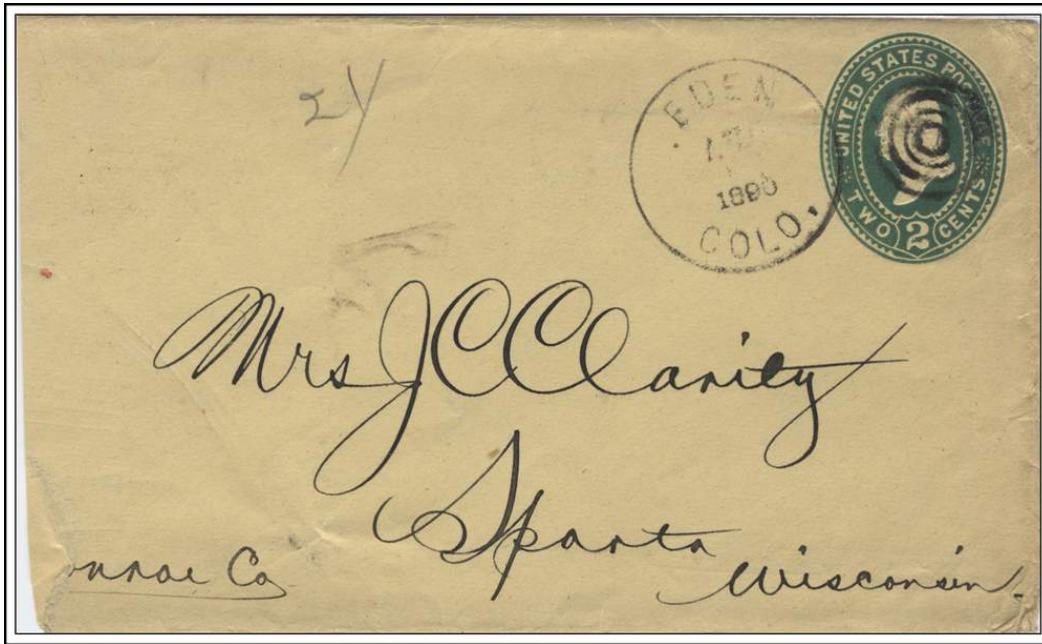 EDEN
COLO.
UNITED STATES POSTAGE
TWO 2 CENTS
Mrs J C Clarity
Sparta
Wisconsin.
onroe Co